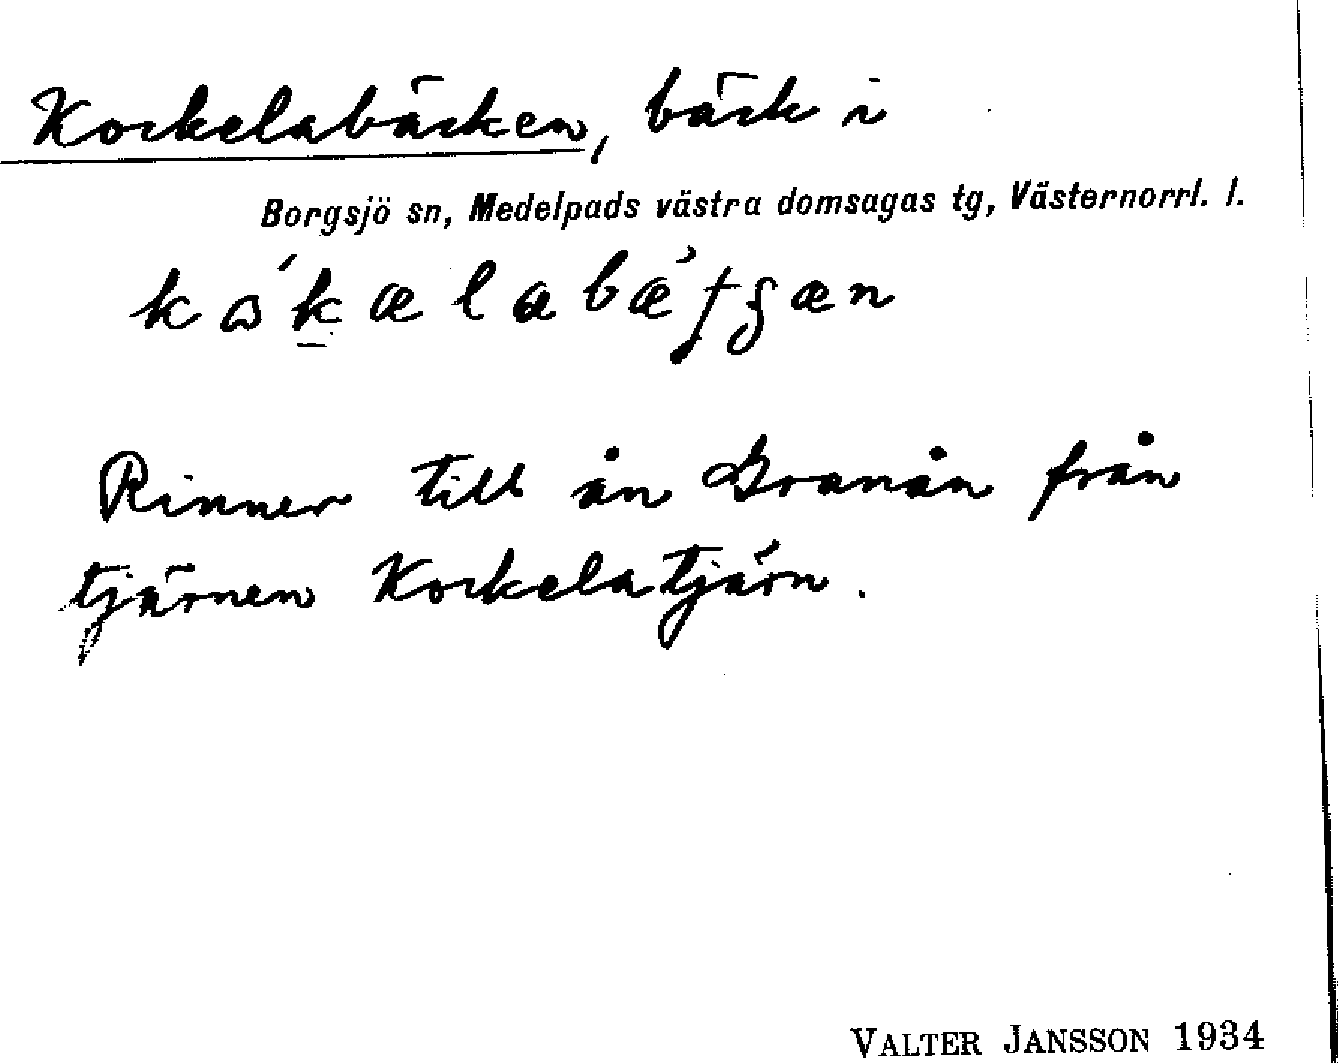 Kockelabäcken, bäck i
Borgsjö sn, Medelpads västra domsagas tg, Västernorrl. l.
Rinner till ån Granån från
tjärnen Kockelatjärn.
VALTER JANSSON 1934